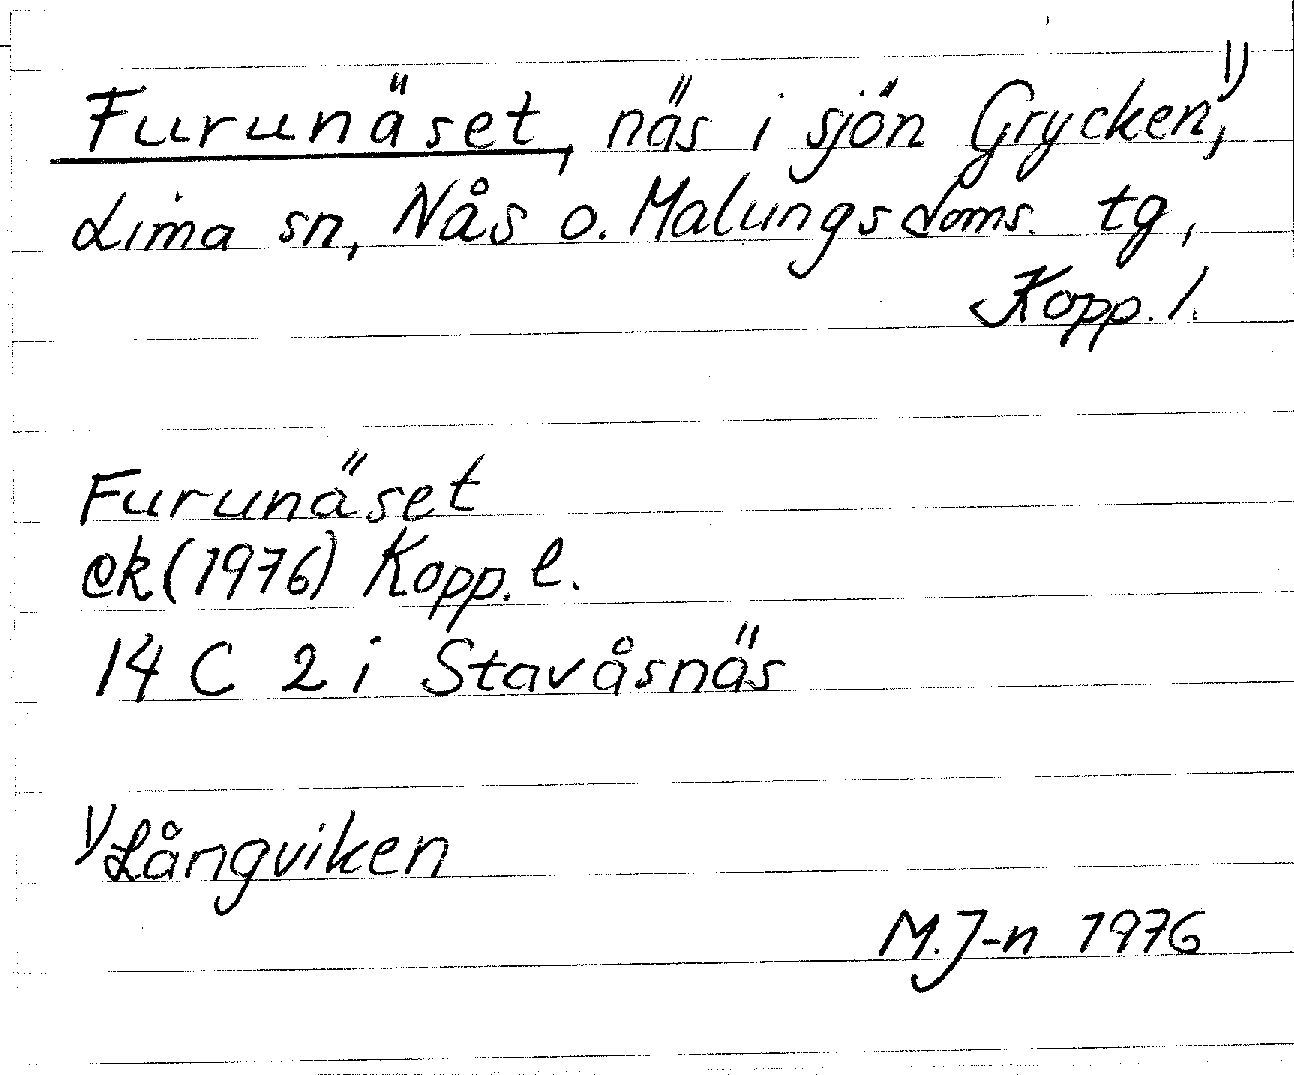 Furunäset, näs i sjön Grycken,¹⁾
Lima sn, Nås o. Malungs doms. tg,
Kopp. l.
Furunäset
ek (1976) Kopp. l.
14 C 2 i Stavåsnäs
¹⁾ Långviken
M. J-n 1976